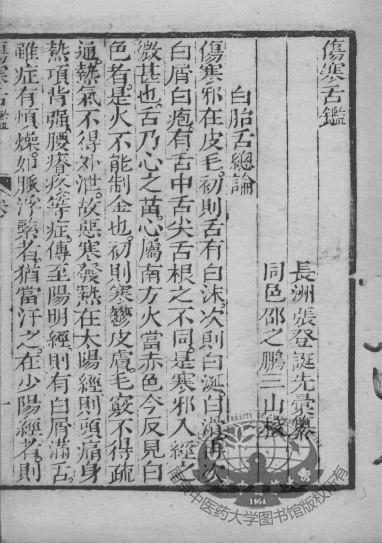 傷寒舌鑑
長洲張登誕先彙纂
同邑邵之鵬三山
白胎舌總論
傷寒邪在皮毛。初則舌有白沫。次則白涎。白滑。再次
白屑白疱。有舌中舌尖舌根之不同。是寒邪入經之
微甚也。舌乃心之苗。心屬南方火當赤色今反見白
色者。是火不能制金也。初則寒鬱皮膚。毛竅不得疏
通。熱氣不得外泄。故惡寒發熱。在太陽經。則頭痛身
熱。項背强。腰脊疼等症。傳至陽明經。則有白屑滿舌。
雖症有煩燥。如脈浮緊者。猶當汗之。在少陽經者。則
傷寒舌鑑
南京中医药大学图书馆版权所有